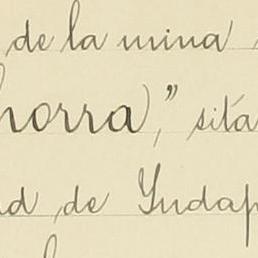 de la mina
horra)," sita
ad de Yudap